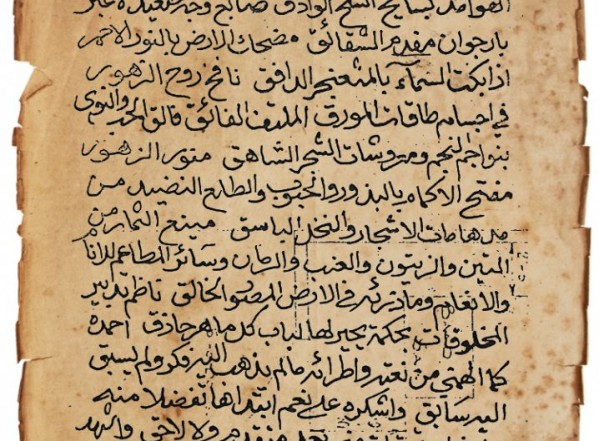 بارجوان مقدم الشقائق مضحك الارض بالنور الاحمر
اذا بكت السمآء بالمثعنجر الدافق نافخ روح الزهور
في اجسام طاقات المورق الملتف الفائق فالق الحب والنوى
بنواجم النجم ومعروشات الشجر الشاهق منور الزهور
مفتح الاكمام بالبذور والحبوب والطلع النضيد من
هامات الاشجار والنخل الباسق مينع الثمار من
التين والزيتون والعنب والرمان وسائر المطاعم للانام
والانعام وما ذرئه في الارض المصور الخالق ناظم تدبير
المخلوقات بحكمة يحير لها لباب كل ماهر حاذق احمده
كما الهمني من نعته واطرائه مالم يذهب اليه فكر ولم يسبق
اليه سابق واشكره على نعم ابتداها تفضلا منه
ولا لاحق